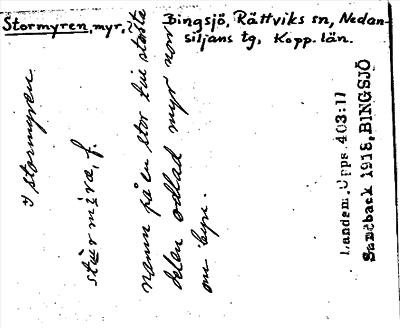 Stormyren, myr, Bingsjö, Rättviks sn, Nedan-
siljans tg, Kopp. län.
I Stormyren
stormira, f.
namn på en stor till största
delen odlad myr norr
om byn.
Landsm. Upps. 403:17
Sandback 1918, BINGSJÖ